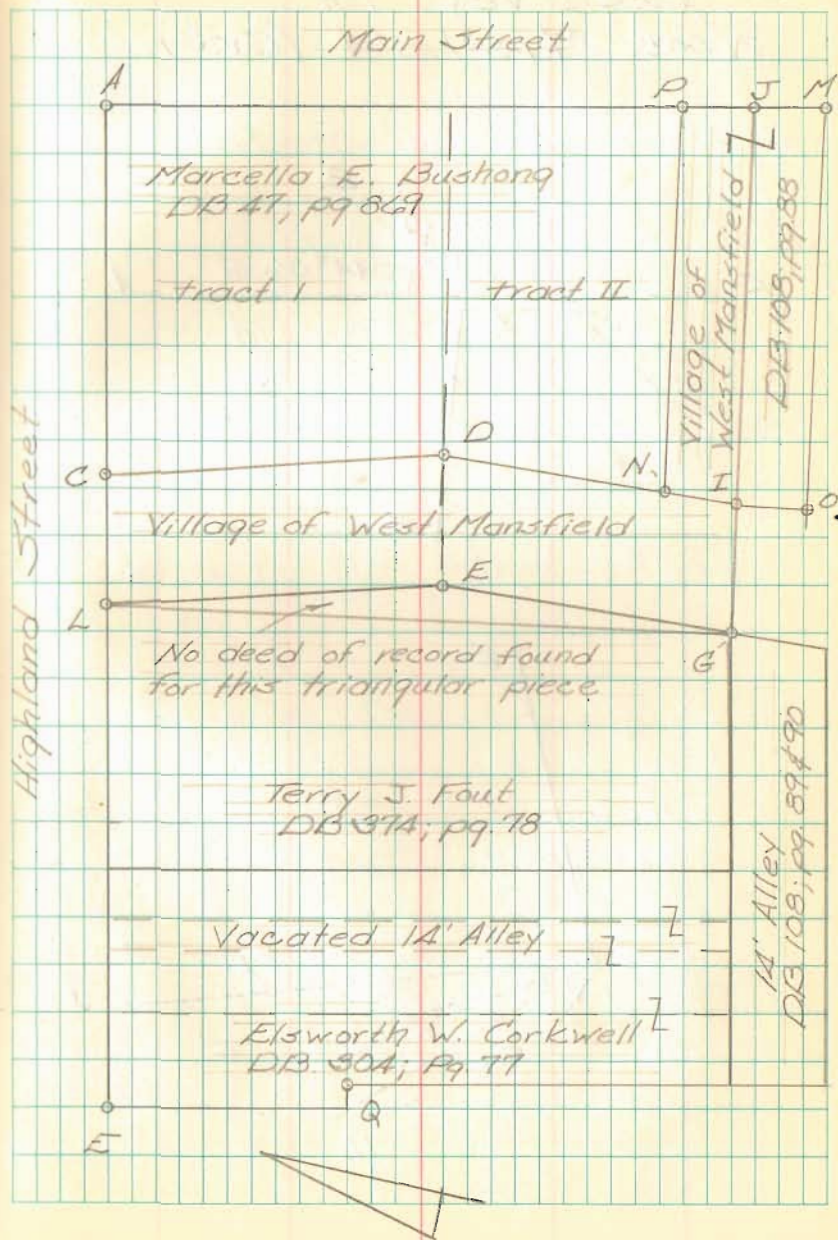 Main Street
A
P
J
M
Marcella E. Bushong
DB 47, pg 869
tract I
tract II
Village of
West Mansfield
DB 108, pg. 88
Highland Street
C
D
N
I
O
Village of West Mansfield
E
L
G
No deed of record found
for this triangular piece
Terry J. Fout
DB 374; pg. 78
14' Alley
DB 108; pg. 89 & 90
Vacated 14' Alley
Elsworth W. Corkwell
DB. 304; Pg. 77
Q
E